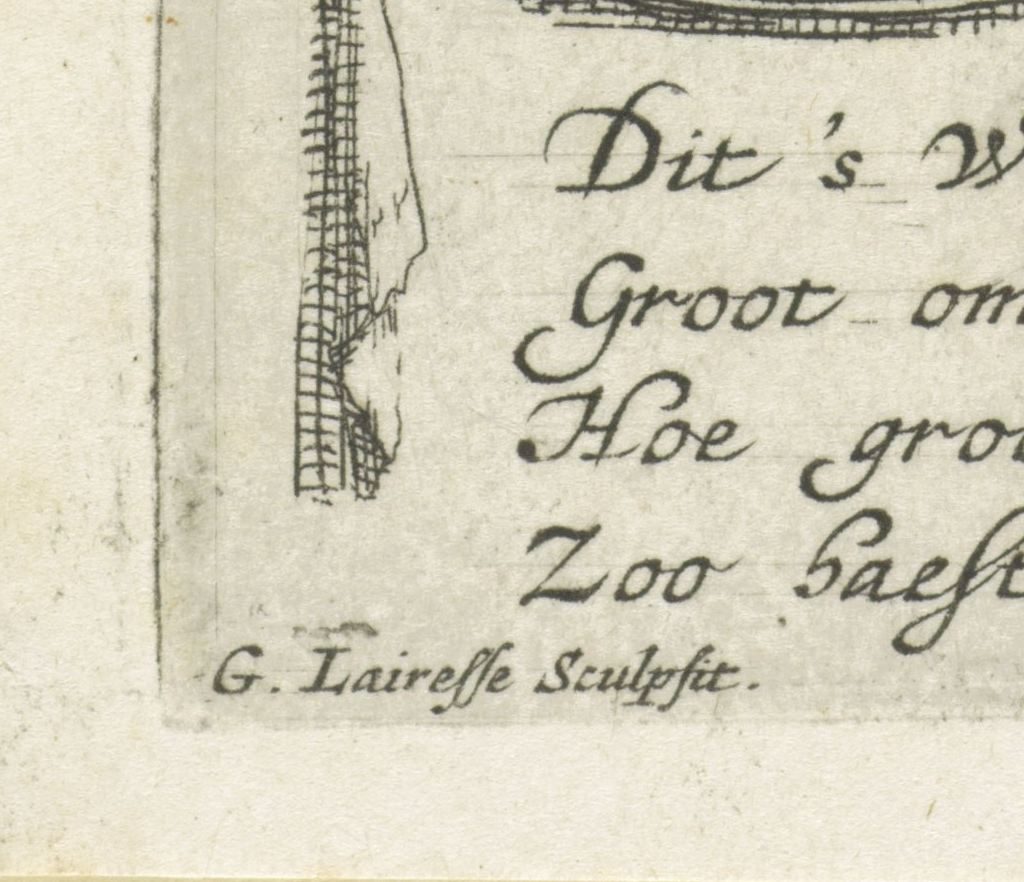 Dit 's W
Groot om
Hoe groo
Zoo haeſt
G. Laireſſe Sculpſit.